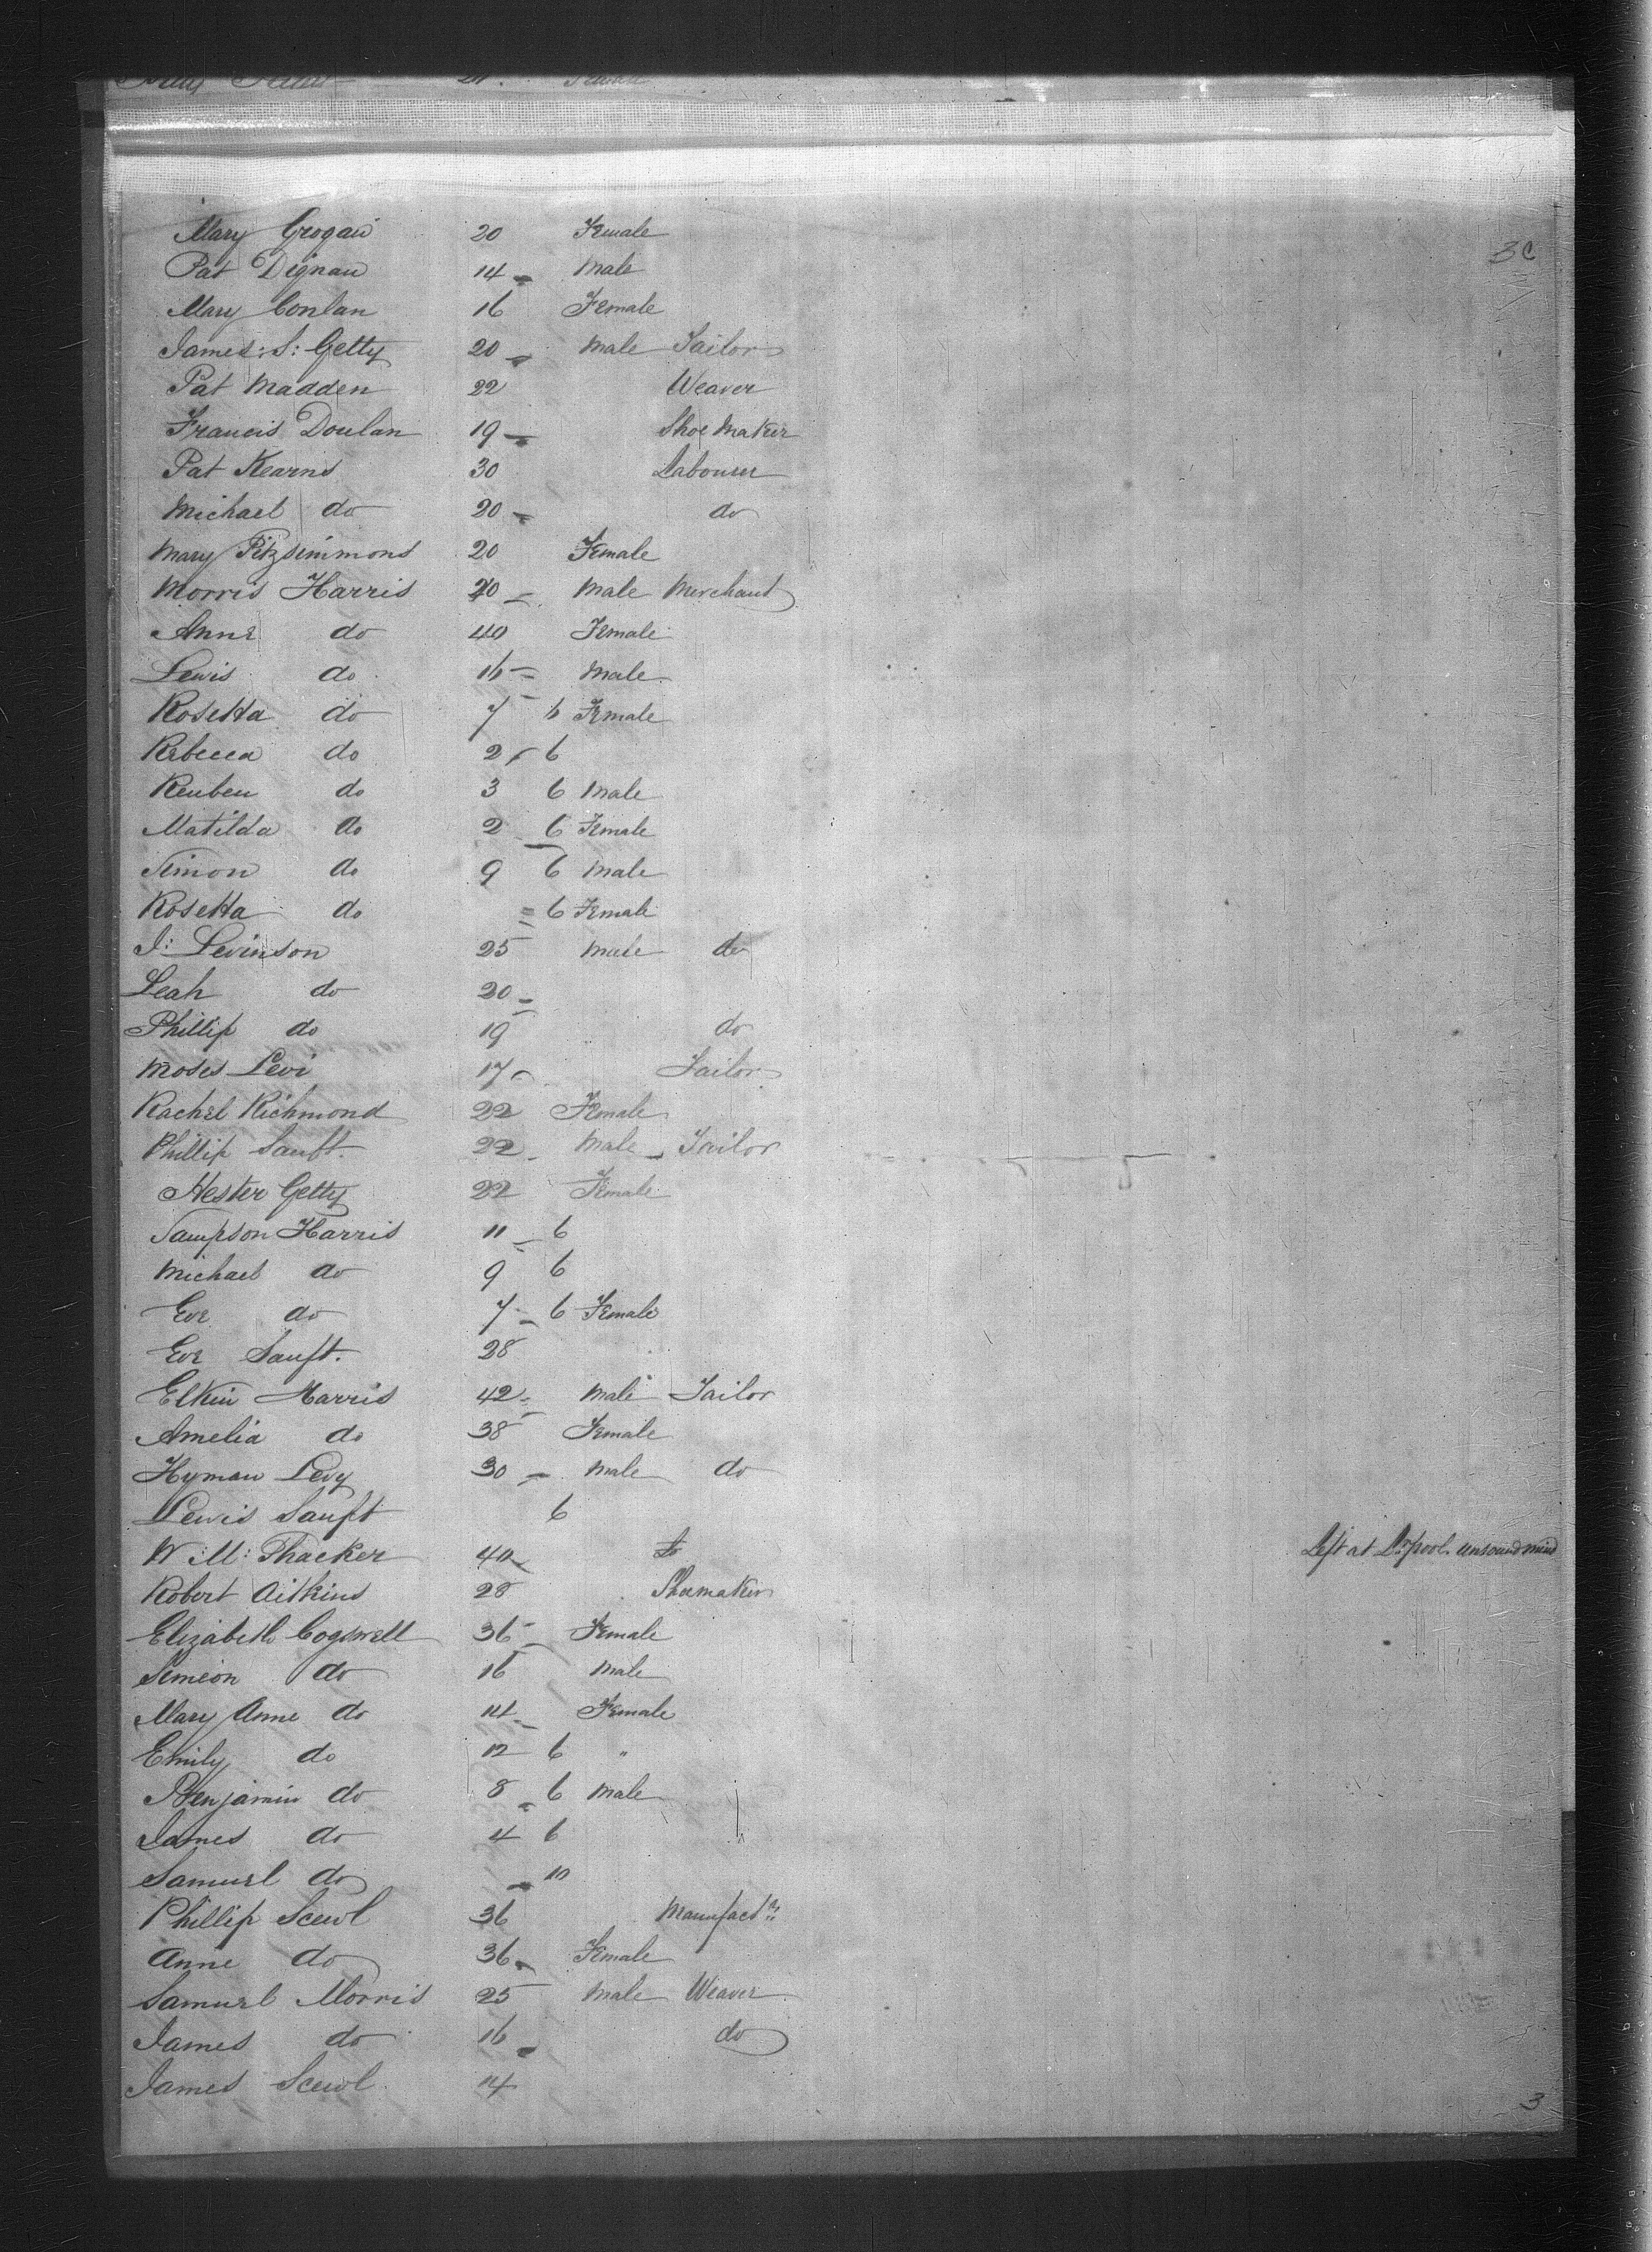 Mary Grogan 20 Female
3c
Pat Dignan 14 Male
Mary Conlan 16 Female
James: S: Getty 20 Male Tailor
Pat Madden 22 Weaver
Francis Doulan 19 Shoe Maker
Pat Kearns 30 Labourer
Michael do 20 do
Mary Fitzsimmons 20 Female
Morris Harris 40 Male Merchant
Anne do 40 Female
Lewis do 16 Male
Rosetta do 7 6 Female
Rebecca do 2 6
Reuben do 3 6 Male
Matilda do 2 6 Female
Simon do 9 6 Male
Rosetta do 6 Female
J: Levinson 25 Male do
Leah do 20
Phillip do 19 do
Moses Levi 17 Tailor
Rachel Richmond 22 Female
Phillip Sauft. 22 Male Tailor
Hester Getty 22 Female
Sampson Harris 11 6
Michael do 9 6
Eve do 7 6 Female
Eve Sauft. 28
Elkin Harris 42 Male Tailor
Amelia do 38 Female
Hyman Levy 30 Male do
Lewis Sauft 6
W: M: Thacker 40 do Left at L'pool. unsound mind
Robert Aitkins 28 Shoemaker
Elizabeth Cogswell 36 Female
Simeon do 16 Male
Mary Anne do 14 Female
Emily do 12 6 "
Benjamin do 8 6 Male
James do 4 6
Samuel do 10
Phillip Scewl 36 Manufactr
Anne do 36 Female
Samuel Morris 25 Male Weaver
James do 16 do
James Scewl 14
3